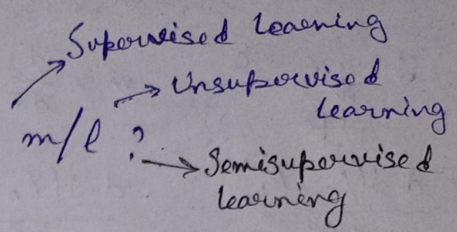 Supervised Learning
Unsupervised
learning
m/l ?
Semisupervised
learning